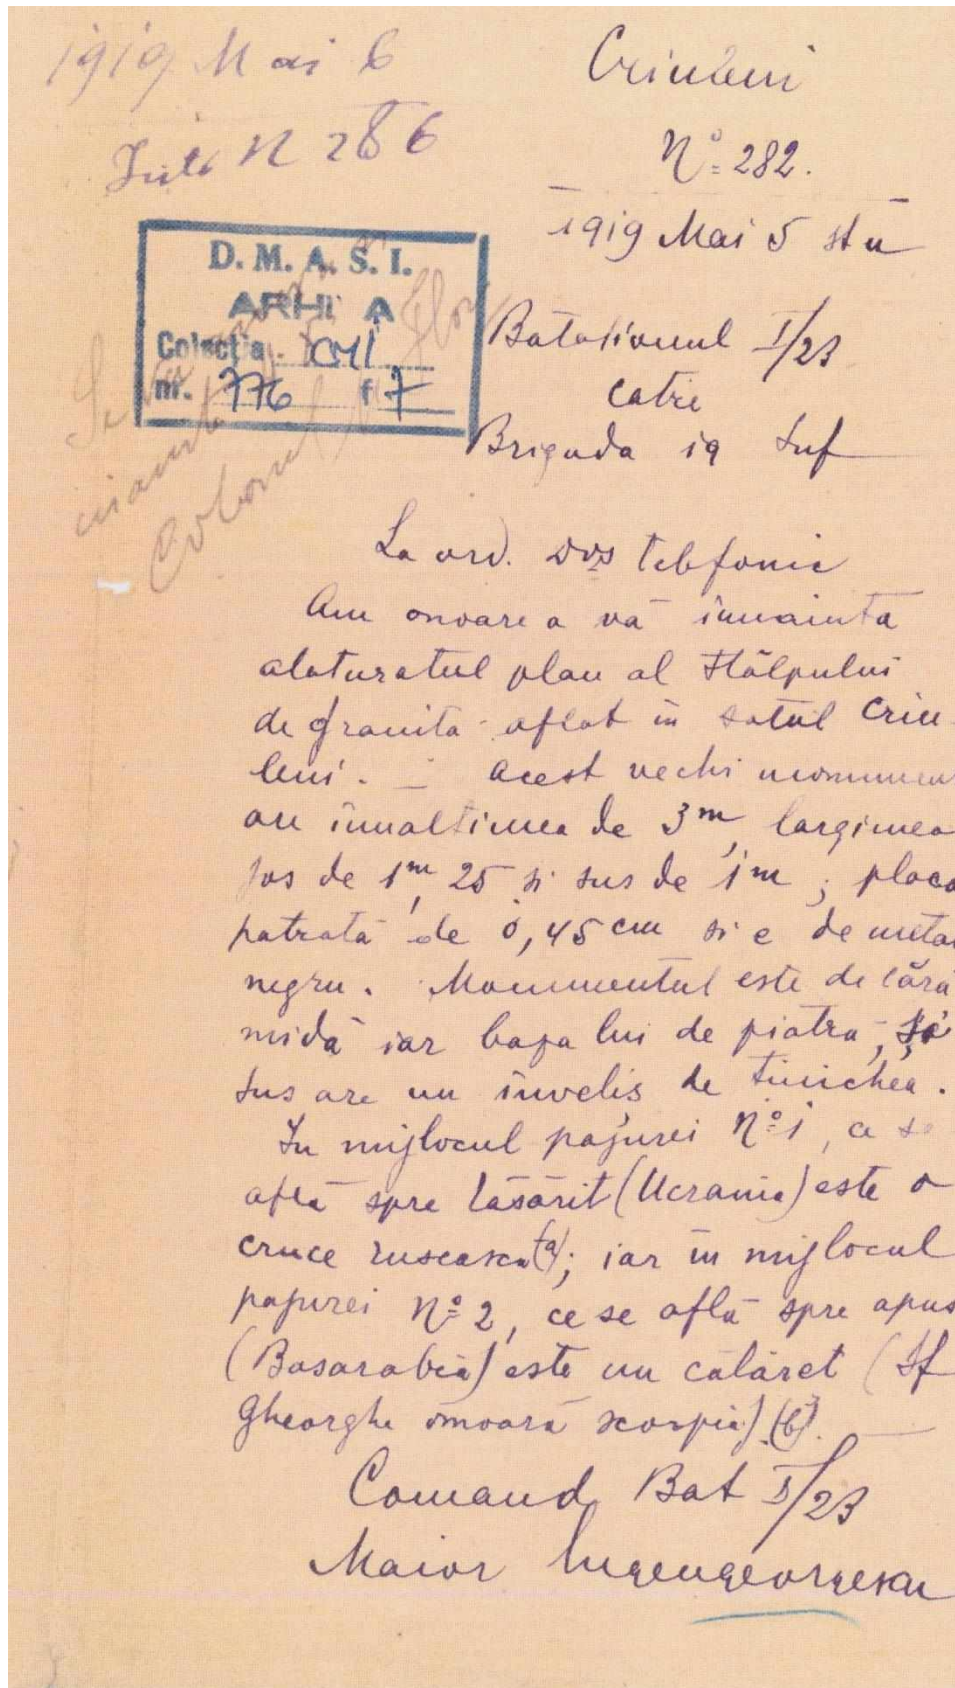 1919 Mai 6
N 286
Criuleni
Nº 282.
1919 Mai 5 st n
D. M. A. S. I.
ARHI A
Colecţia
nr. 776 f 7
Colonel
Batalionul I/23
catre
Brigada 19 Inf
La ord. dvs telefonic
Am onoare a vă înnainta
alaturatul plan al stâlpului
de granita aflat in satul Criu
leni. — Acest vechi monumen
are innaltimea de 3m, largimea
jos de 1m, 25 si sus de 1m; placa
patrată de 0,45 cm si e de metal
negru. Monumentul este de cără
midă iar baza lui de piatra, și
sus are un înveliș de tinichea.
In mijlocul pajurei Nº 1, ce se
află spre răsărit (Ucrania) este o
cruce rusească (a); iar in mijlocul
pajurei Nº 2, ce se află spre apus
(Basarabia) este un călăret (Sf
Gheorghe omoară scorpia) (b).
Comand Bat I/23
Maior